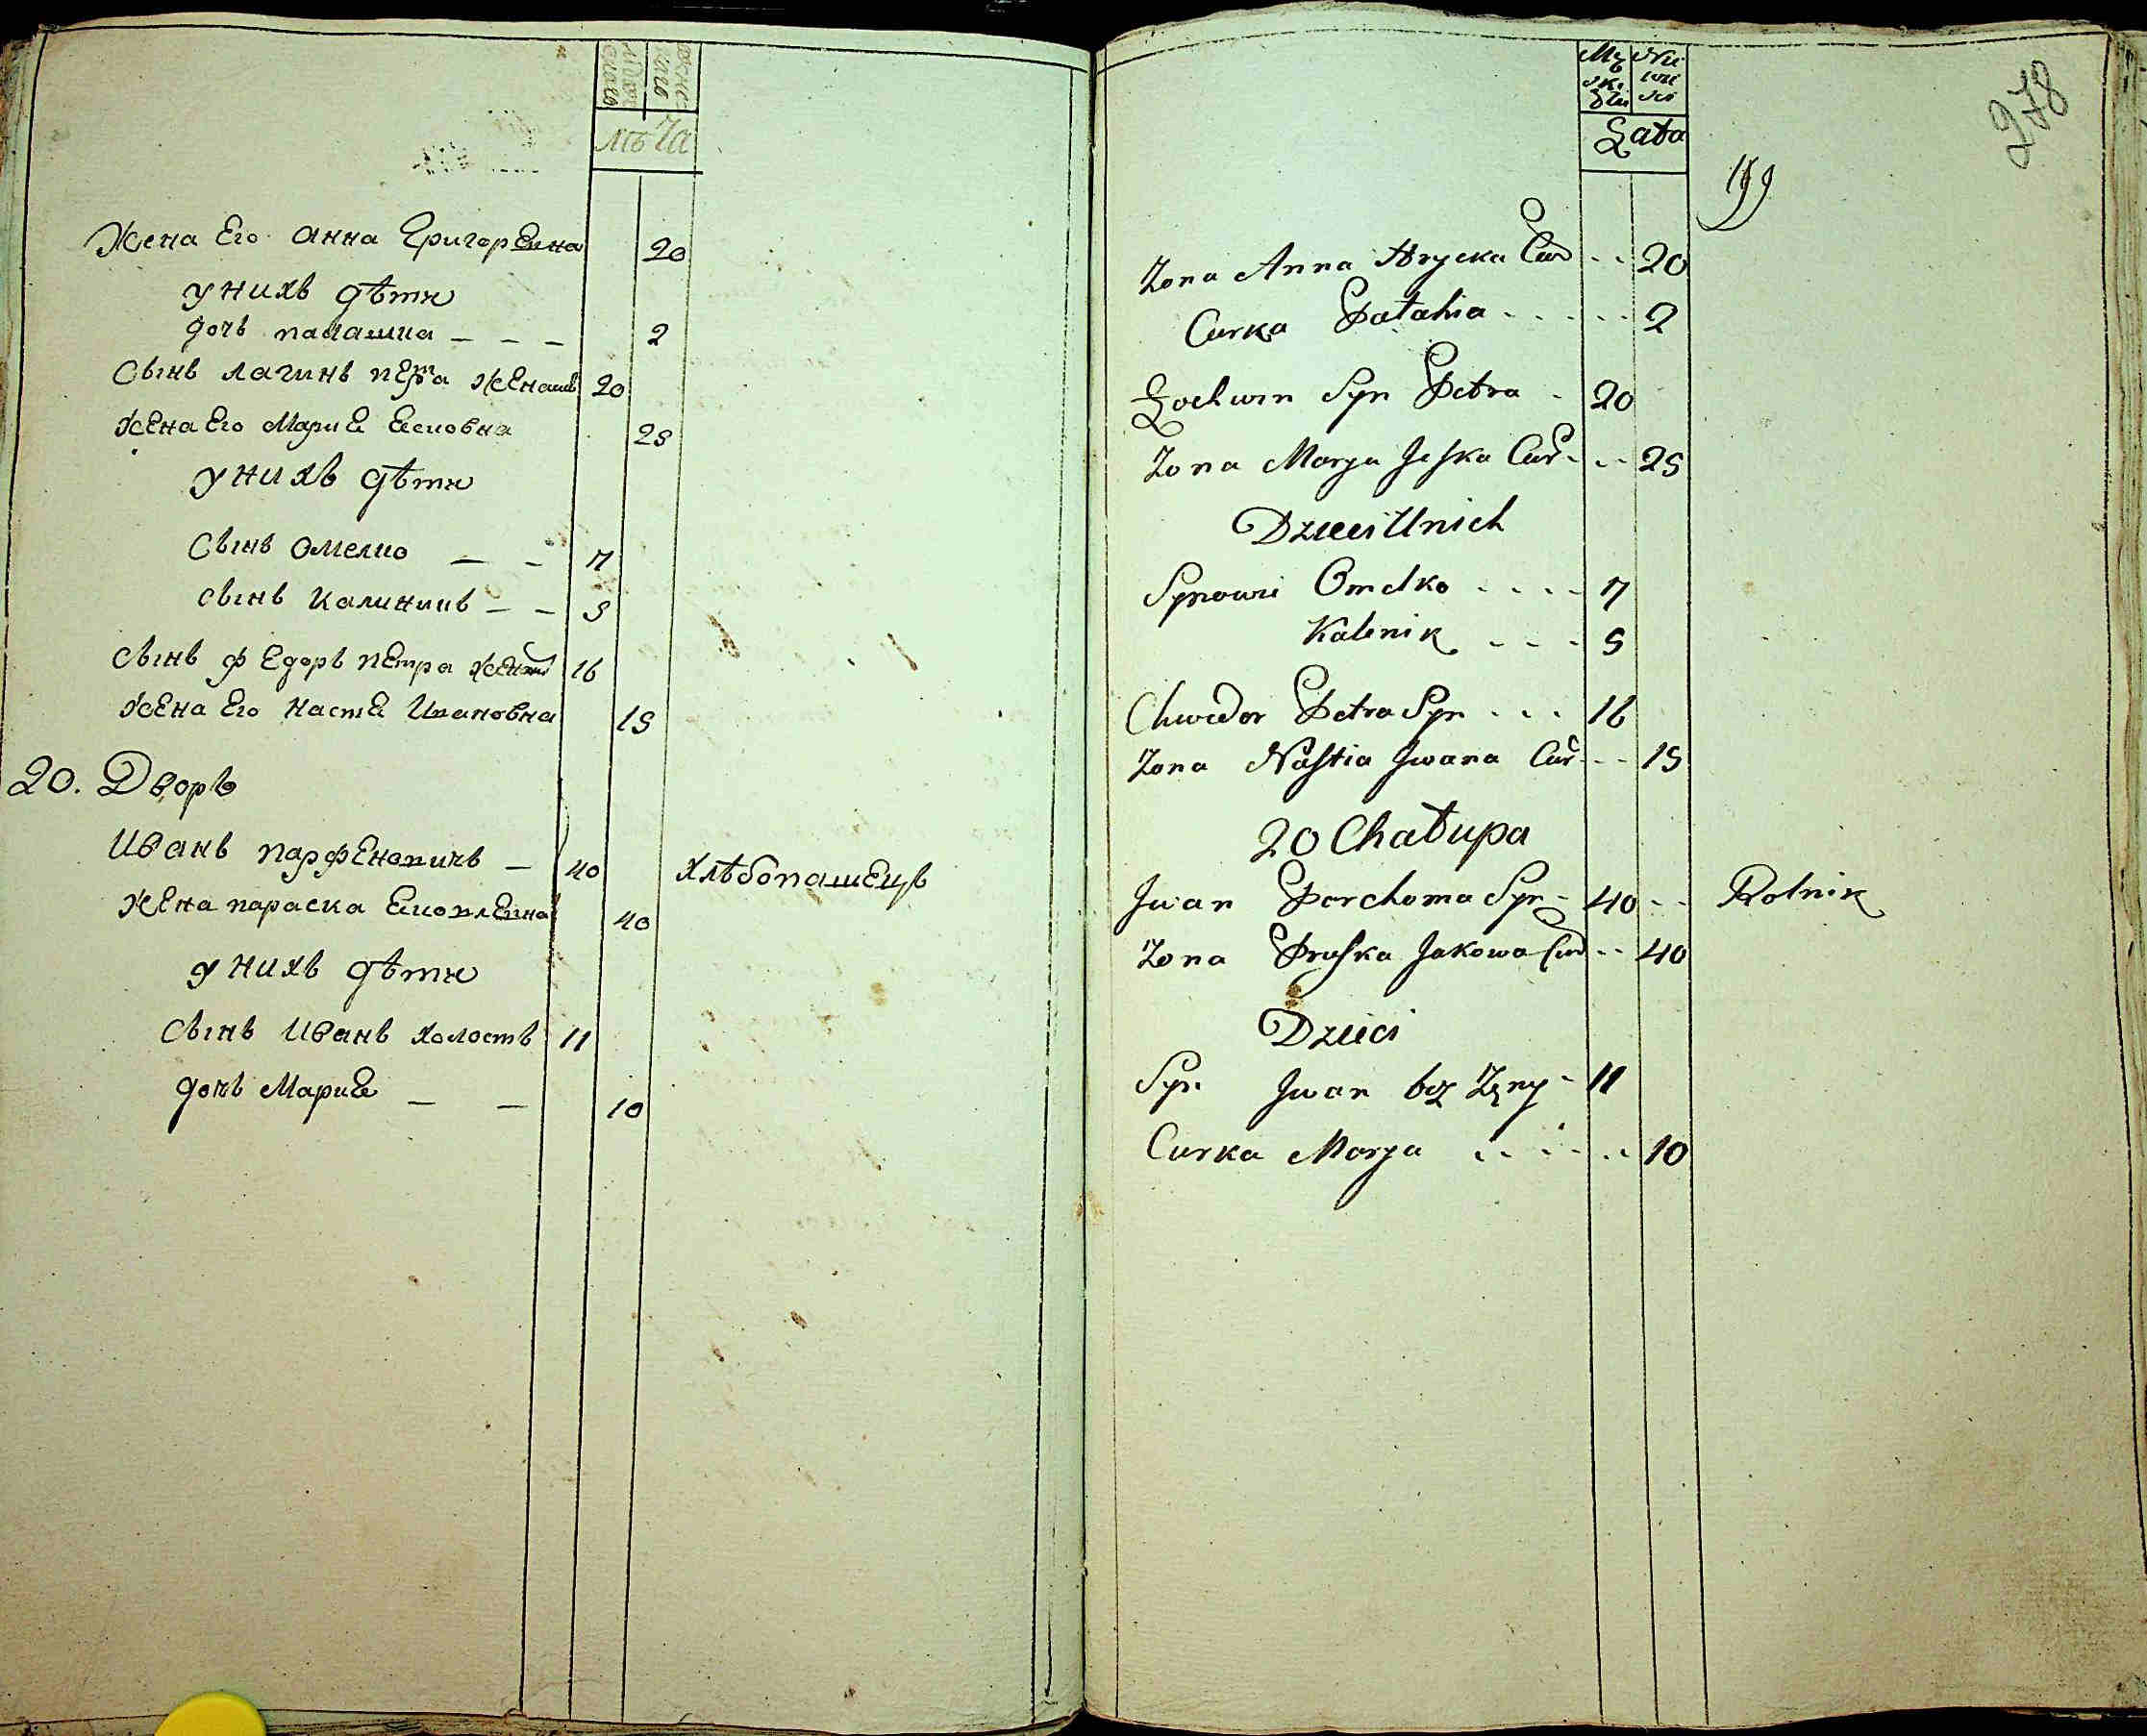 лѣта
Жена Его Анна Григорьевна 20
у нихъ дѣти
дочь палашка — — — 2
Сынъ лагинъ петра женатъ 20
жена Его Мария Есковна 25
у нихъ дѣти
Сынъ Омелко — — 7
сынъ калиникъ — — 5
сынъ Федоръ петра женатъ 16
жена Его Настя Ивановна 15
20. Дворъ
Иванъ парфеновичъ — 40 хлѣбопашецъ
жена параска Яковлевна 40
у нихъ дѣти
сынъ Иванъ холостъ 11
дочь Мария — — 10
278
199
Męskiey Niewiesci
Łata
Zona Anna Hrycka Cur - - 20
Curka Patahia - - - - - 2
Łochwin Syn Petra - 20
Zona Marya Jeska Cur - - - 25
Dzieci Unich
Synowie Omelko - - - - 7
Kalenik - - - - 5
Chwedor Petra Syn - - - 16
Zona Nastia Jwana Cur - - - 15
20 Chałupa
Jwan Parchoma Syn - 40 - - Rolnik
Zona Pruska Jakowa Cur - - 40
Dzieci
Syn Jwan bez Zęny - 11
Curka Marya - - - - - - 10